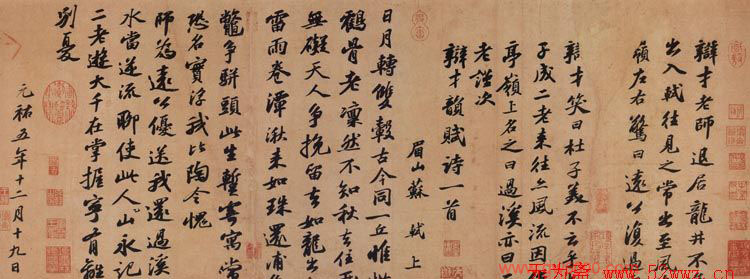 辯才老師退居龍井不
出入軾往見之常出至風
嶺左右驚曰遠公復過
辯才笑曰杜子美不云乎
子成二老來往亦風流因
亭嶺上名之曰過溪亦曰
老謹次
辯才韻賦詩一首
眉山蘇軾上
日月轉雙轂古今同一丘惟
鶴骨老凜然不知秋去住
無礙天人爭挽留去如龍出
雷雨卷潭湫來如珠還浦
鼈爭駢頭此生暫寄寓常
恐名實浮我比陶令愧
師為遠公優送我還過溪
水當逆流聊使此人山永記
二老遊大千在掌握寧有離
別憂
元祐五年十二月十九日
无为斋 www.52wwz.cn